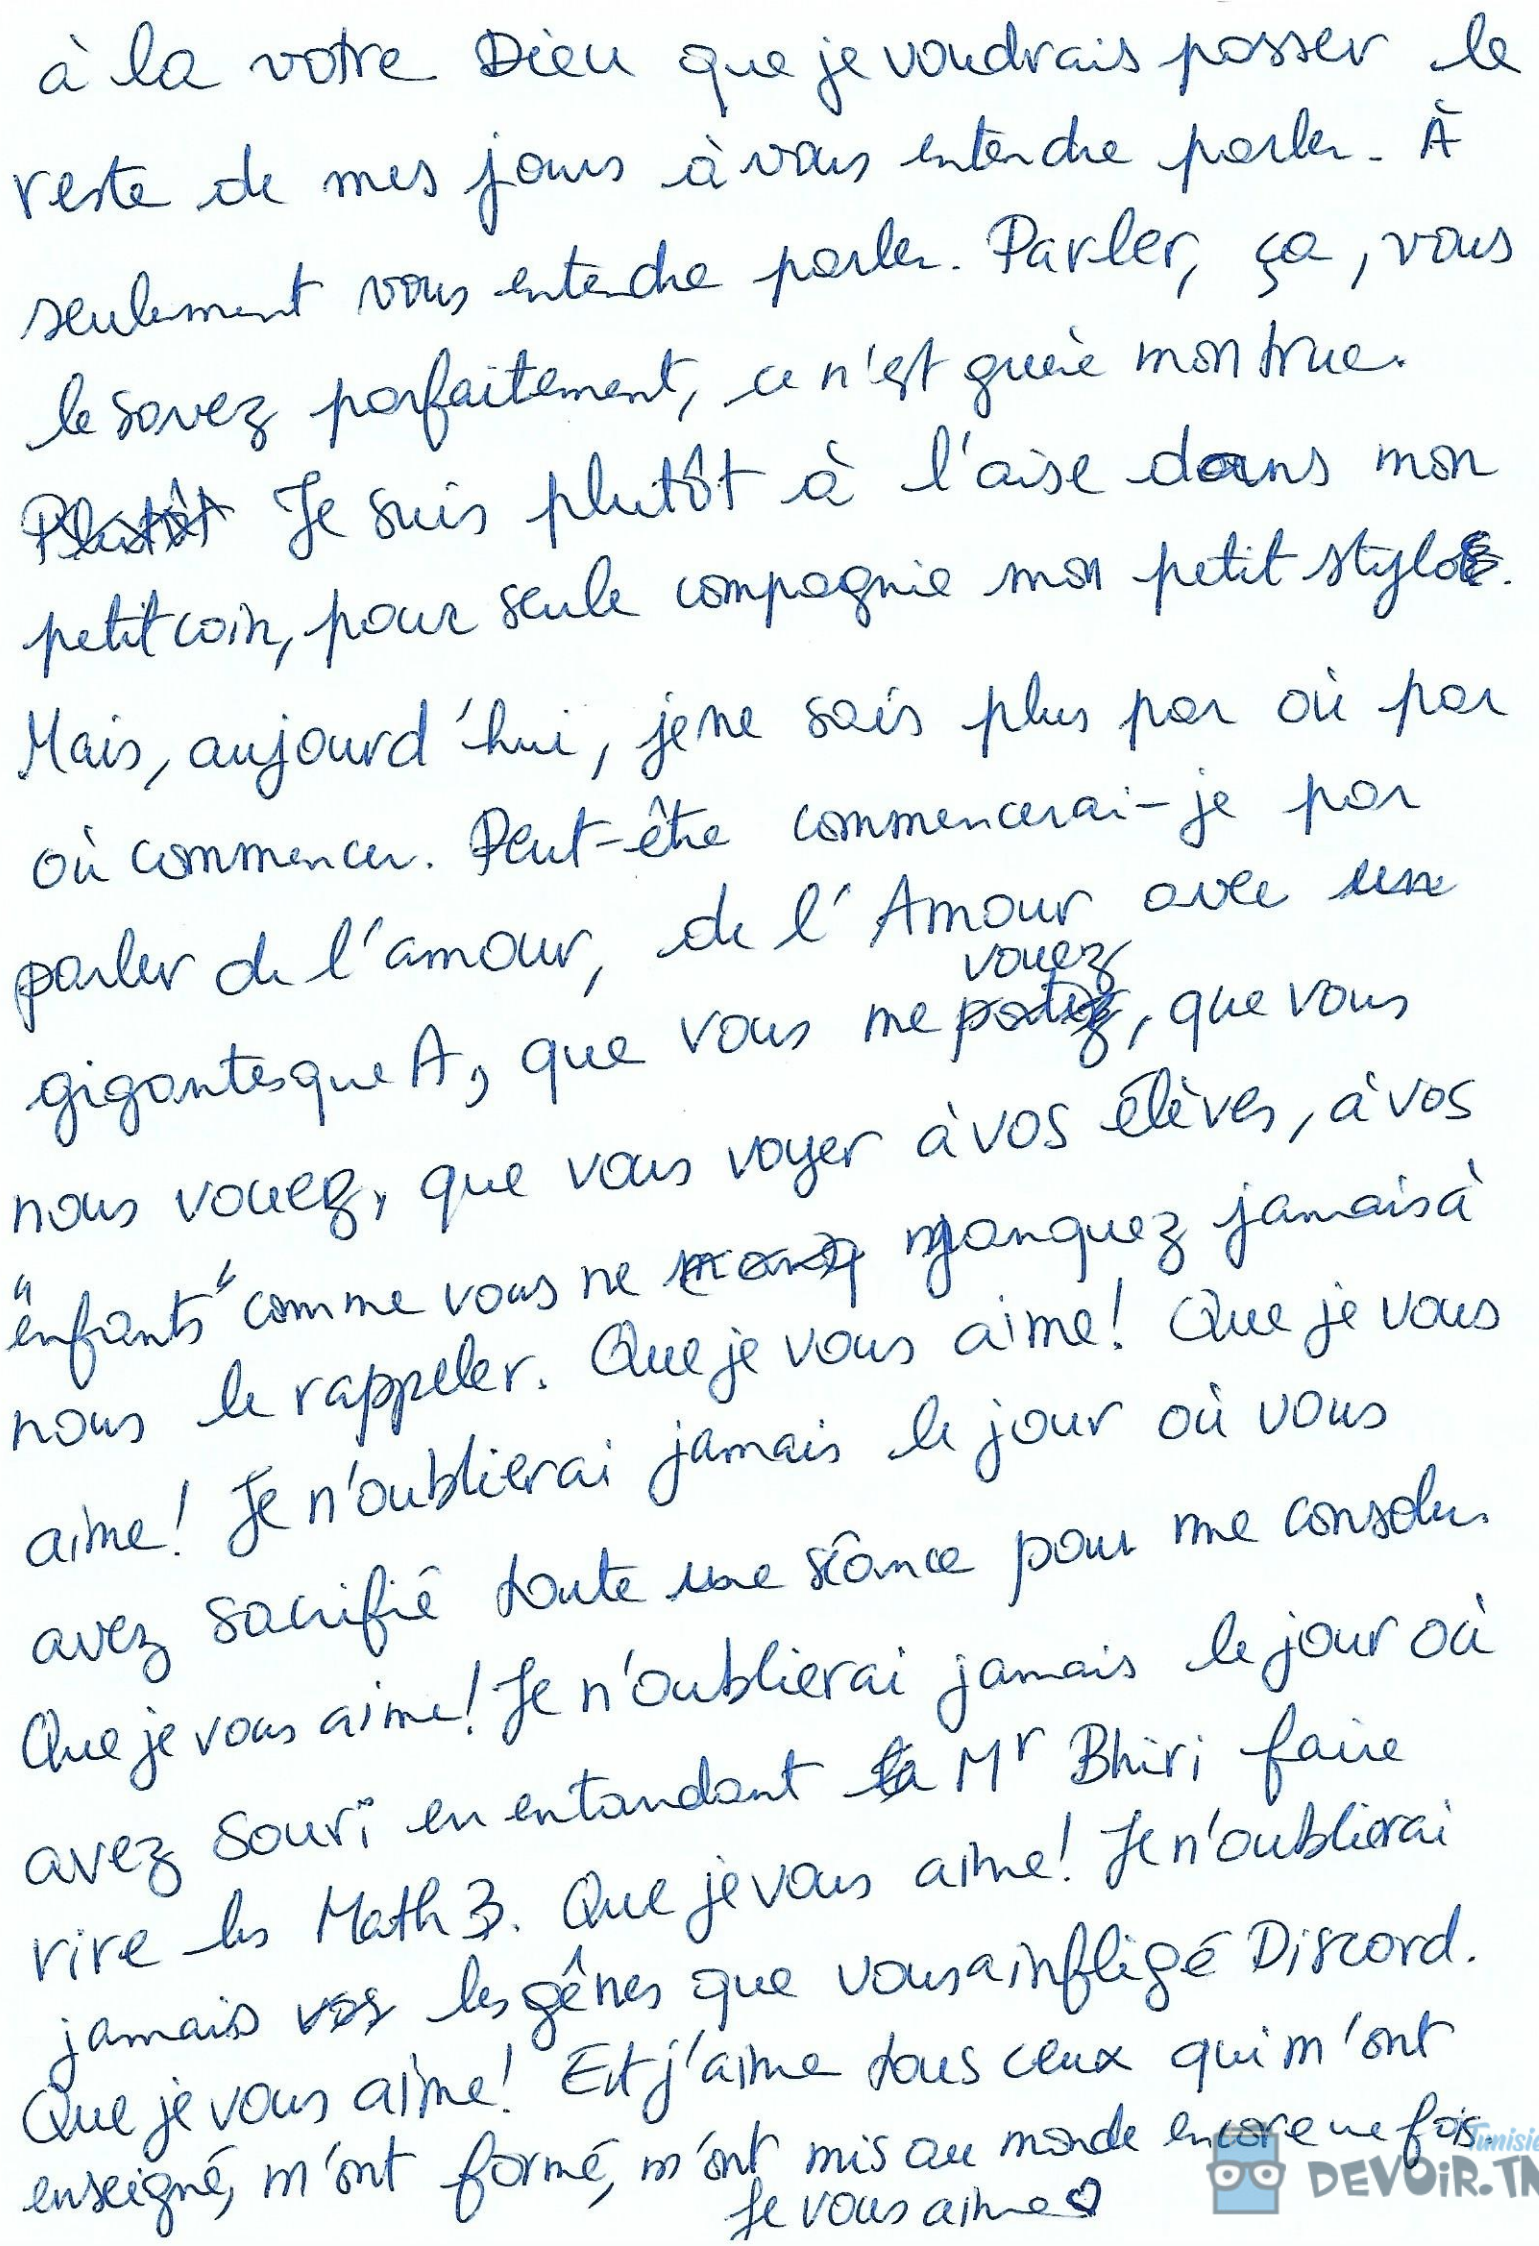 à la votre Dieu que je voudrais passer le
reste de mes jours à vous entendre parler. À
seulement vous entendre parler. Parler, ça, vous
le savez parfaitement, ce n'est guère mon truc.
Plutôt Je suis plutôt à l'aise dans mon
petit coin, pour seule compagnie mon petit stylo.
Mais, aujourd'hui, je ne sais plus par où par
où commencer. Peut-être commencerai-je par
parler de l'amour, de l'Amour avec un
vouez
gigantesque A, que vous me portez, que vous
nous vouez, que vous voyer à vos élèves, à vos
"enfants" comme vous ne manq manquez jamais à
nous le rappeler. Que je vous aime! Que je vous
aime! Je n'oublierai jamais le jour où vous
avez sacrifié toute une séance pour me consoler.
Que je vous aime! Je n'oublierai jamais le jour où
avez souri en entandant la Mr Bhiri faire
rire les Math 3. Que je vous aime! Je n'oublierai
jamais vos les gênes que vous a infligé Discord.
Que je vous aime! Et j'aime tous ceux qui m'ont
enseigné, m'ont formé, m'ont mis au monde encore une fois.
Je vous aime ♡
Tunisie
DEVOIR.TN